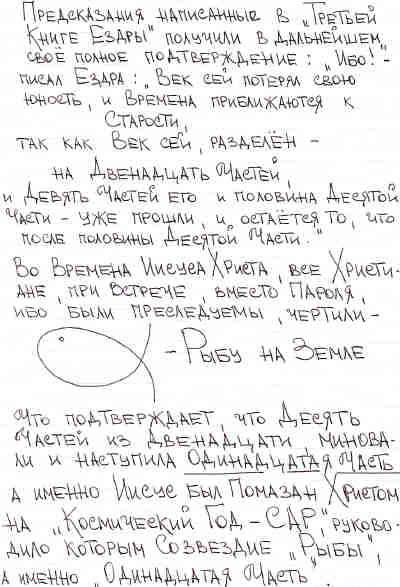 Предсказания написанные в "Третьей
Книге Ездры" получили в дальнейшем
своё полное подтверждение: "Ибо!"-
писал Ездра: "Век сей потерял свою
юность, и времена приближаются к
Старости,
так как Век сей, разделён -
на Двенадцать Частей,
и Девять Частей его и половина Десятой
Части - уже прошли, и остаётся то, что
после половины Десятой Части."
Во Времена Иисуса Христа, все Христи-
ане, при встрече, вместо Пароля,
ибо были преследуемы, чертили -
- Рыбу на Земле
Что подтверждает, что Десять
Частей из Двенадцати, минова-
ли и наступила Одинадцатая Часть
а именно Иисус был Помазан Христом
на "Космический Год - САР", руково-
дило которым Созвездие "Рыбы",
а именно "Одинадцатая Часть".